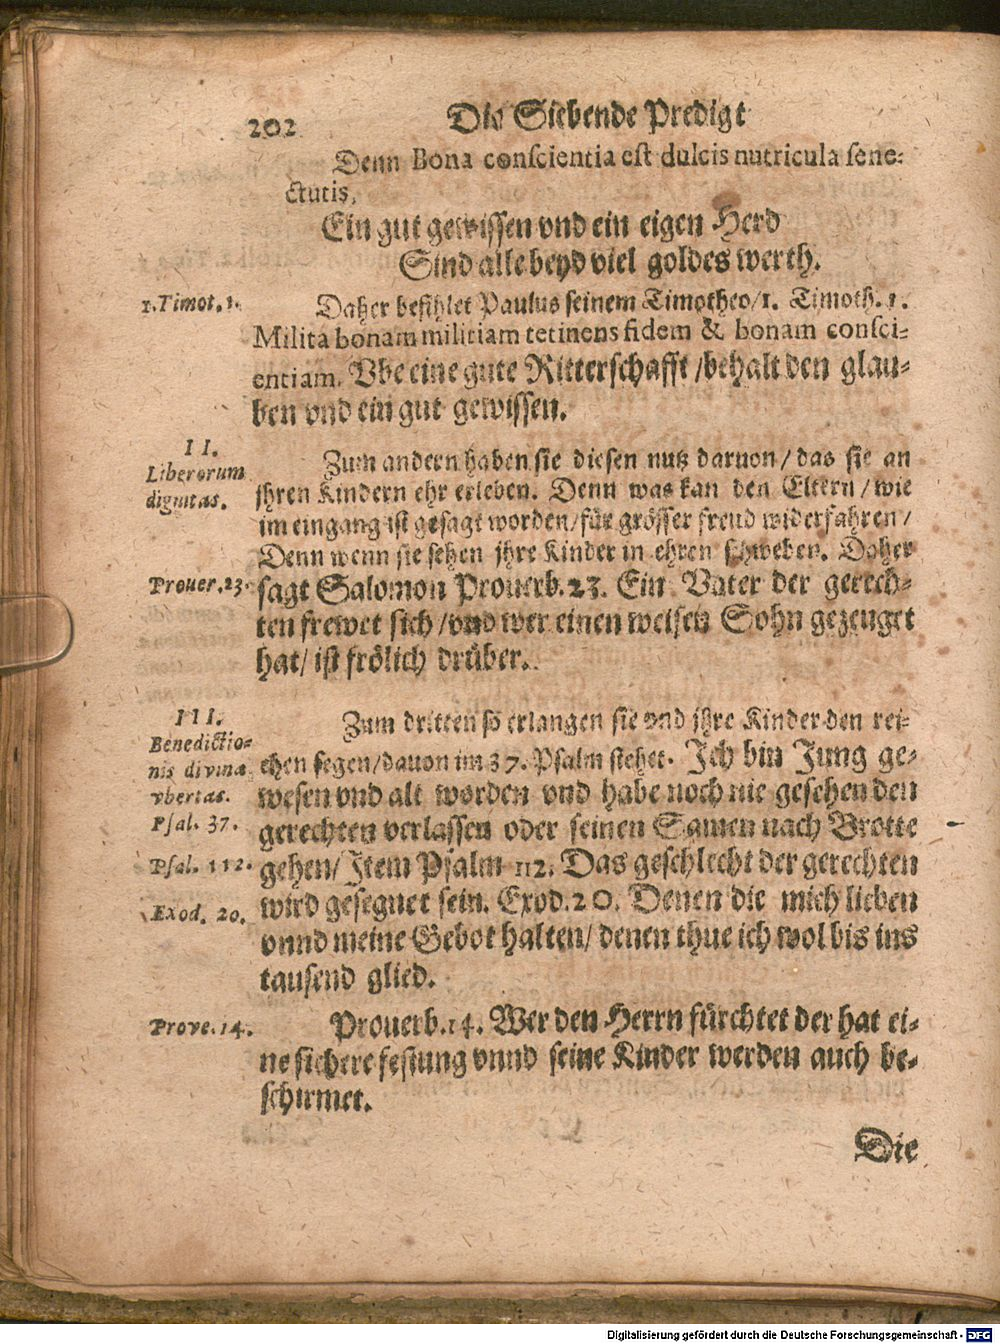 202
Die Siebende Predigt
Denn Bona conscientia est dulcis nutricula sene-
ctutis,
Ein gut gewissen vnd ein eigen Herd
Sind alle beyd viel goldes werth.
1. Timot. 1.
Daher befihlet Paulus seinem Timotheo/ 1. Timoth. 1.
Milita bonam militiam retinens fidem & bonam consci-
entiam. Vbe eine gute Ritterschafft /behalt den glau-
ben vnd ein gut gewissen.
II.
Liberorum
dignitas.
Zum andern haben sie diesen nutz daruon/ das sie an
jhren Kindern ehr erleben. Denn was kan den Eltern/ wie
im eingang ist gesagt worden/ für grösser freud widerfahren/
Denn wenn sie sehen jhre Kinder in ehren schweben. Daher
Prouer. 23.
sagt Salomon Prouerb. 23. Ein Vater der gerech-
ten frewet sich /vnd wer einen weisen Sohn gezeuget
hat/ ist frölich drüber.
III.
Benedictio-
nis divinæ
vbertas.
Psal. 37.
Psal. 112.
Exod. 20.
Zum dritten so erlangen sie vnd jhre Kinder den rei-
chen segen/ dauon im 37. Psalm stehet. Ich bin Jung ge-
wesen vnd alt worden vnd habe noch nie gesehen den
gerechten verlassen oder seinen Samen nach Brotte
gehen/ Item Psalm 112. Das geschlecht der gerechten
wird gesegnet sein. Exod. 20. Denen die mich lieben
vnnd meine Gebot halten/ denen thue ich wol bis ins
tausend glied.
Prove. 14.
Prouerb. 14. Wer den Herrn fürchtet der hat ei-
ne sichere festung vnnd seine Kinder werden auch be-
schirmet.
Die
Digitalisierung gefördert durch die Deutsche Forschungsgemeinschaft - DFG